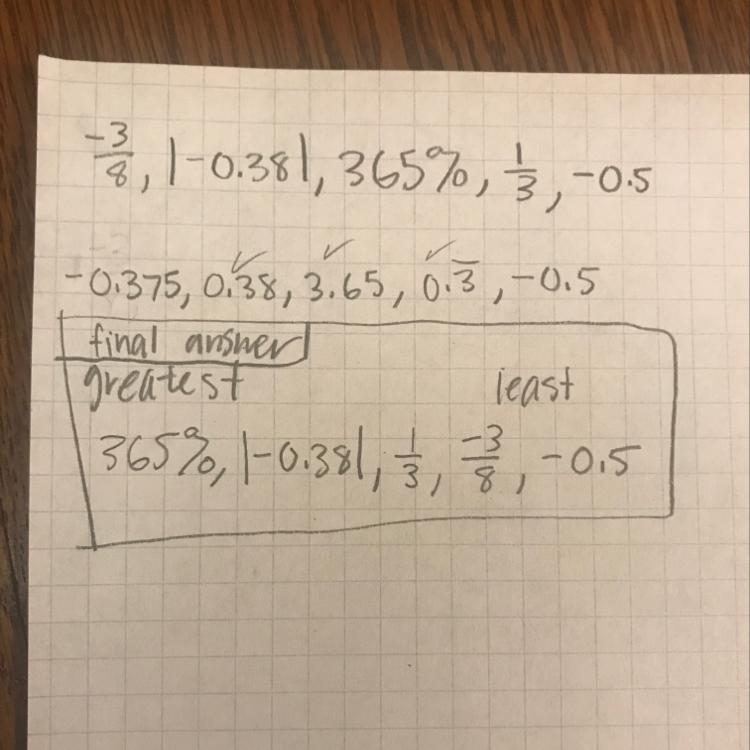 -3/8, |-0.38|, 365%, 1/3, -0.5
-0.375, 0.38, 3.65, 0.3̅, -0.5
final answer
greatest least
365%, |-0.38|, 1/3, -3/8, -0.5